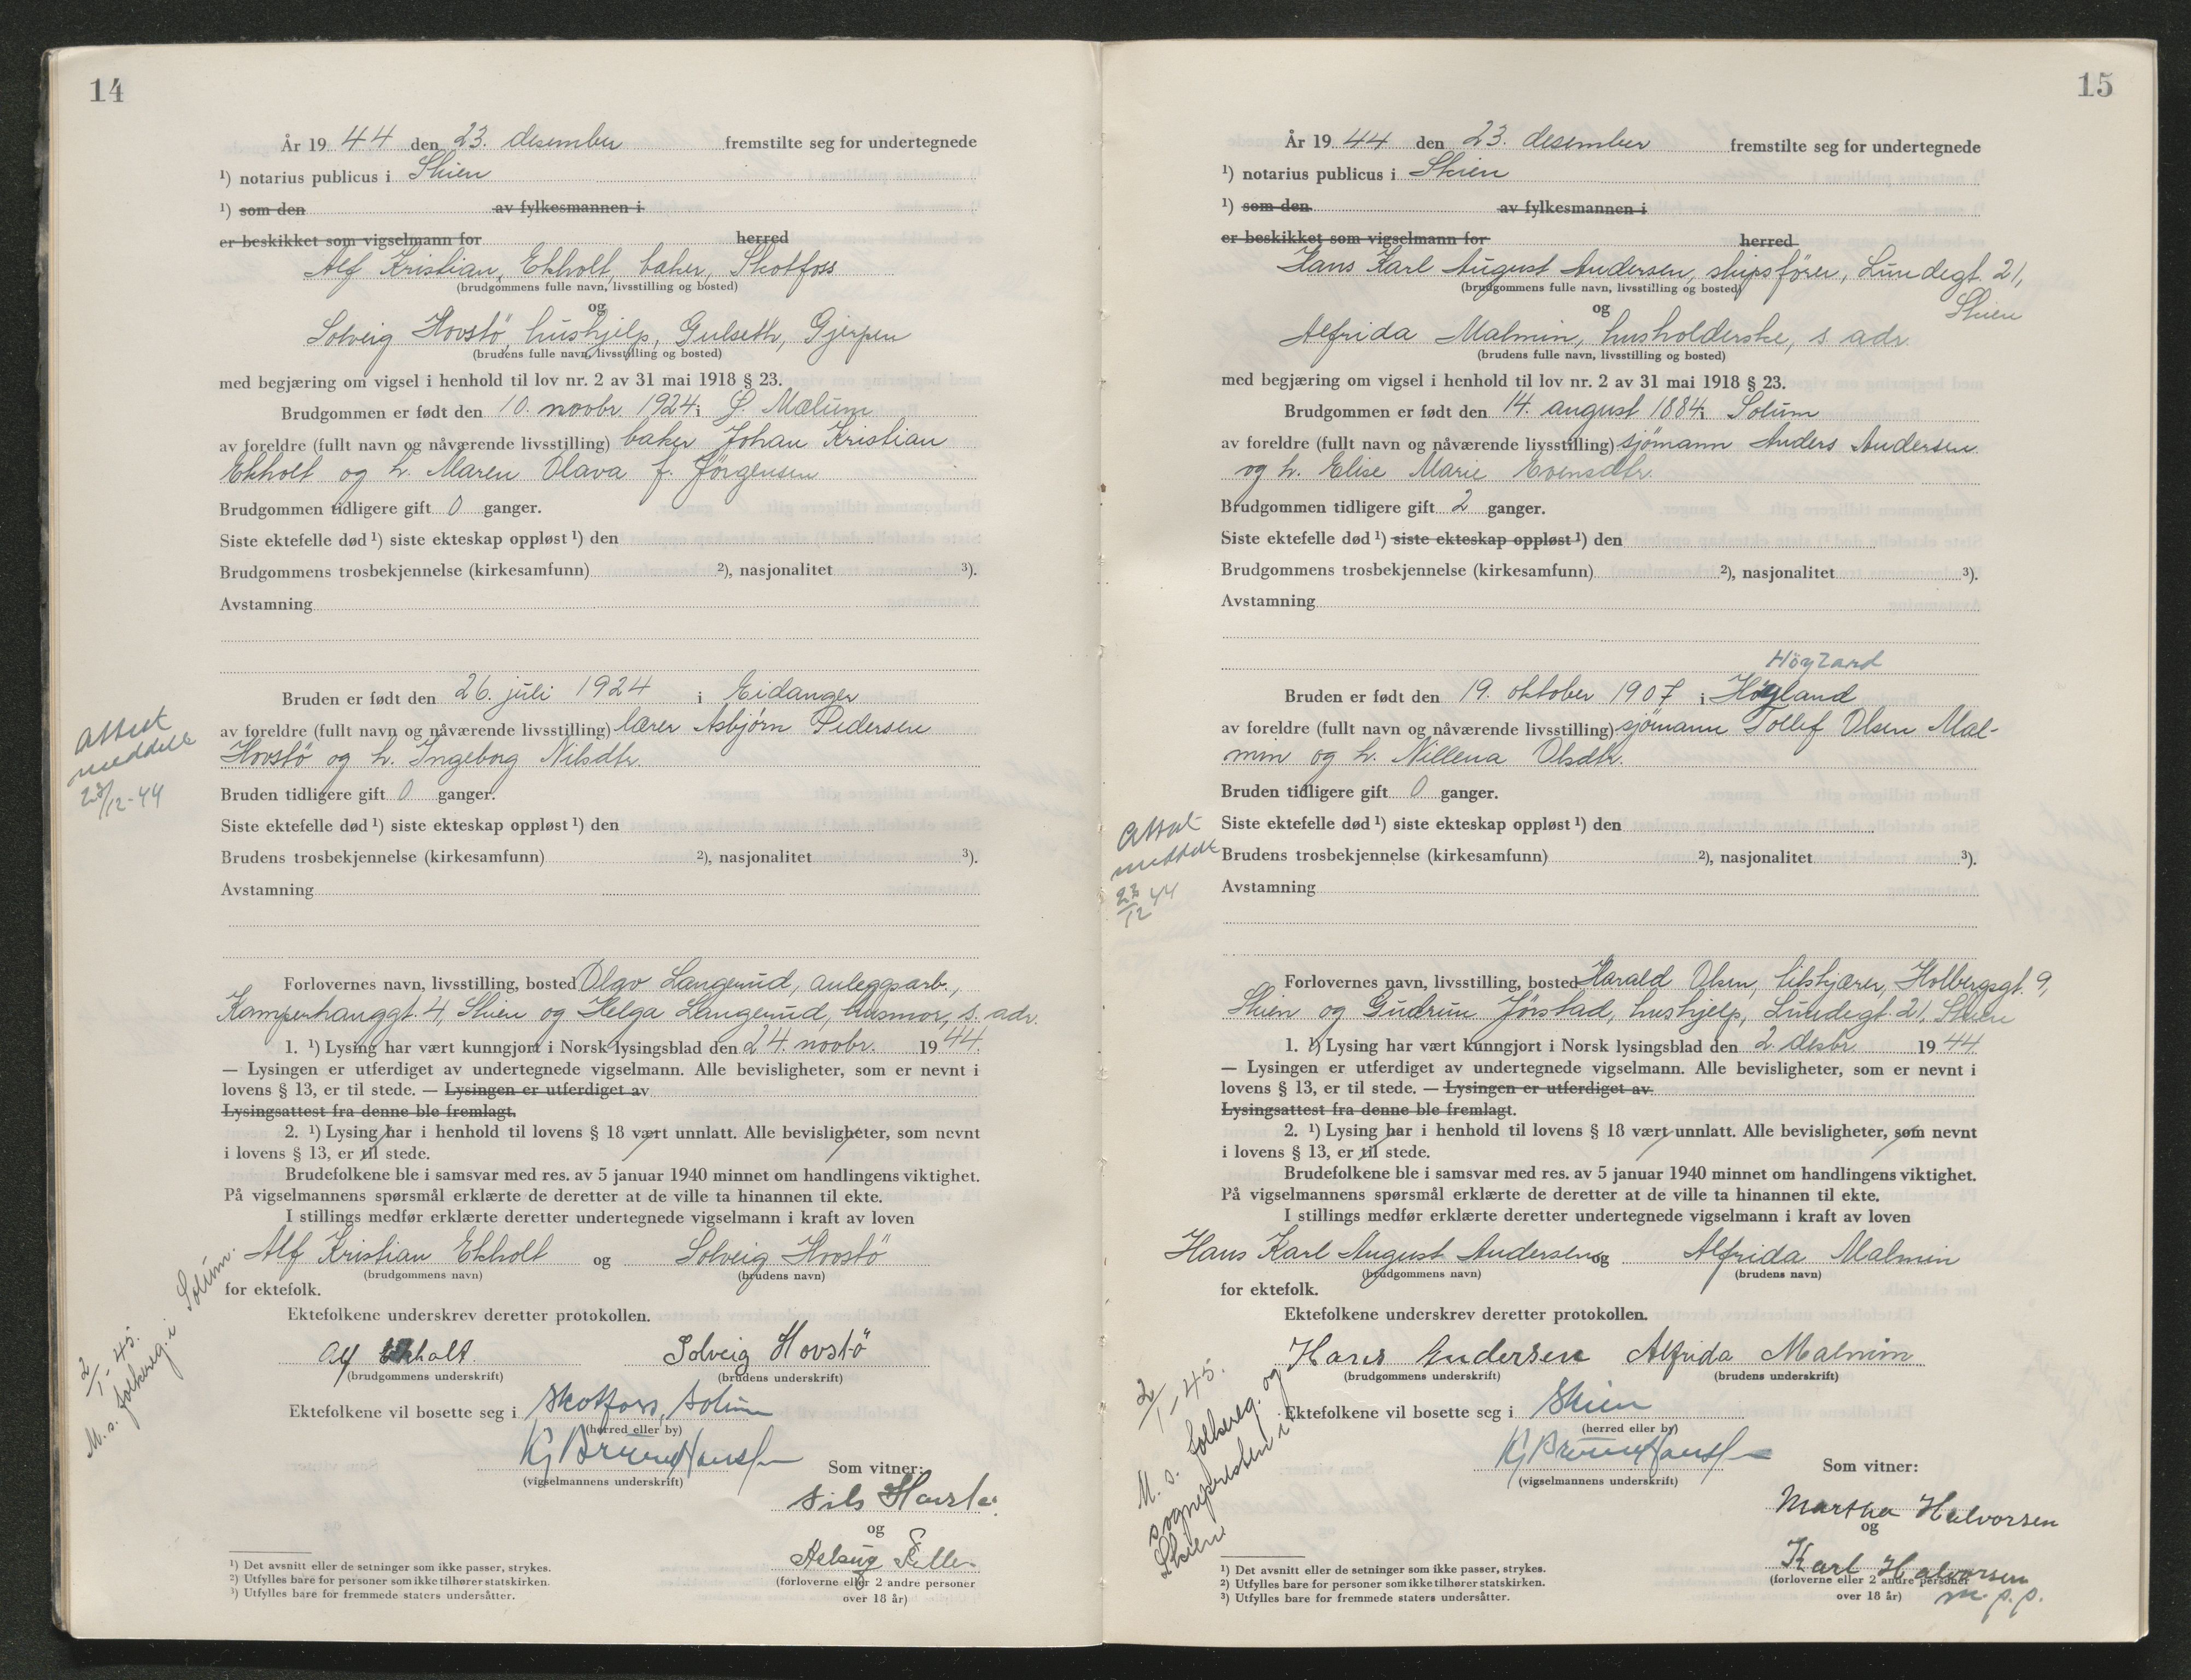 14
År 19 44 den 23. desember fremstilte seg for undertegnede
¹) notarius publicus i Skien
¹) som den av fylkesmannen i
er beskikket som vigselmann for herred
Alf Kristian Ekholt, baker, Skotfoss
(brudgommens fulle navn, livsstilling og bosted)
og
Solveig Hovstö, hushjelp, Gulseth, Gjerpen
(brudens fulle navn, livsstilling og bosted)
med begjæring om vigsel i henhold til lov nr. 2 av 31 mai 1918 § 23.
Brudgommen er født den 10. novbr. 1924 i S. Mælum
av foreldre (fullt navn og nåværende livsstilling) baker Johan Kristian
Ekholt og h. Maren Olava f. Jörgensen
Brudgommen tidligere gift 0 ganger.
Siste ektefelle død ¹) siste ekteskap oppløst ¹) den
Brudgommens trosbekjennelse (kirkesamfunn) ²), nasjonalitet ³).
Avstamning
Bruden er født den 26. juli 1924 i Eidanger
av foreldre (fullt navn og nåværende livsstilling) lærer Asbjörn Pedersen
Hovstö og h. Ingeborg Nilsdtr.
Bruden tidligere gift 0 ganger.
Siste ektefelle død ¹) siste ekteskap oppløst ¹) den
Brudens trosbekjennelse (kirkesamfunn) ²), nasjonalitet ³).
Avstamning
Attest
meddelt
23/12-44
Forlovernes navn, livsstilling, bosted Olav Langerud, anleggsarb.,
Kamperhauggt. 4, Skien og Helga Langerud, husmor, s. adr.
1. ¹) Lysing har vært kunngjort i Norsk lysingsblad den 24. novbr. 19 44.
— Lysingen er utferdiget av undertegnede vigselmann. Alle bevisligheter, som er nevnt i
lovens § 13, er til stede. — Lysingen er utferdiget av
Lysingsattest fra denne ble fremlagt.
2. ¹) Lysing har i henhold til lovens § 18 vært unnlatt. Alle bevisligheter, som nevnt
i lovens § 13, er til stede.
Brudefolkene ble i samsvar med res. av 5 januar 1940 minnet om handlingens viktighet.
På vigselmannens spørsmål erklærte de deretter at de ville ta hinannen til ekte.
I stillings medfør erklærte deretter undertegnede vigselmann i kraft av loven
Alf Kristian Ekholt og Solveig Hovstö
(brudgommens navn) (brudens navn)
for ektefolk.
Ektefolkene underskrev deretter protokollen.
Alf Ekholt. Solveig Hovstö
(brudgommens underskrift) (brudens underskrift)
Ektefolkene vil bosette seg i Skotfoss, Solum
(herred eller by)
(vigselmannens underskrift)
Som vitner:
og
(forloverne eller 2 andre personer
over 18 år)
2/1-45.
M. s. folkereg. i Solum.
¹) Det avsnitt eller de setninger som ikke passer, strykes.
²) Utfylles bare for personer som ikke tilhører statskirken.
³) Utfylles bare for fremmede staters undersåtter.
15
År 19 44 den 23. desember fremstilte seg for undertegnede
¹) notarius publicus i Skien
¹) som den av fylkesmannen i
er beskikket som vigselmann for herred
Hans Karl August Andersen, skipsförer, Lundegt. 21,
Skien
(brudgommens fulle navn, livsstilling og bosted)
og
Alfrida Malmin, husholderske, s. adr.
(brudens fulle navn, livsstilling og bosted)
med begjæring om vigsel i henhold til lov nr. 2 av 31 mai 1918 § 23.
Brudgommen er født den 14. august 1884 i Solum
av foreldre (fullt navn og nåværende livsstilling) sjömann Anders Andersen
og h. Elise Marie Evensdtr.
Brudgommen tidligere gift 2 ganger.
Siste ektefelle død ¹) siste ekteskap oppløst ¹) den
Brudgommens trosbekjennelse (kirkesamfunn) ²), nasjonalitet ³).
Avstamning
Höyland
Bruden er født den 19. oktober 1907 i Höyland
av foreldre (fullt navn og nåværende livsstilling) sjömann Tollef Olsen Mal-
min og h. Nillena Olsdtr.
Bruden tidligere gift 0 ganger.
Siste ektefelle død ¹) siste ekteskap oppløst ¹) den
Brudens trosbekjennelse (kirkesamfunn) ²), nasjonalitet ³).
Avstamning
Attest
meddelt
23/12 44
Forlovernes navn, livsstilling, bosted Harald Olsen, Holbergsgt. 9,
Skien og Gudrun Jörstad, hushjelp, Lundegt. 21, Skien
1. ¹) Lysing har vært kunngjort i Norsk lysingsblad den 2. desbr. 19 44
— Lysingen er utferdiget av undertegnede vigselmann. Alle bevisligheter, som er nevnt i
lovens § 13, er til stede. — Lysingen er utferdiget av
Lysingsattest fra denne ble fremlagt.
2. ¹) Lysing har i henhold til lovens § 18 vært unnlatt. Alle bevisligheter, som nevnt
i lovens § 13, er til stede.
Brudefolkene ble i samsvar med res. av 5 januar 1940 minnet om handlingens viktighet.
På vigselmannens spørsmål erklærte de deretter at de ville ta hinannen til ekte.
I stillings medfør erklærte deretter undertegnede vigselmann i kraft av loven
Hans Karl August Andersen og Alfrida Malmin
(brudgommens navn) (brudens navn)
for ektefolk.
Ektefolkene underskrev deretter protokollen.
Hans Andersen Alfrida Malmin
(brudgommens underskrift) (brudens underskrift)
Ektefolkene vil bosette seg i Skien
(herred eller by)
(vigselmannens underskrift)
Som vitner:
Martha Halvorsen
og
Karl Halvorsen
m. p. p.
(forloverne eller 2 andre personer
over 18 år)
2/1-45.
M. s. folkereg. og
sognepresten i
Skien
¹) Det avsnitt eller de setninger som ikke passer, strykes.
²) Utfylles bare for personer som ikke tilhører statskirken.
³) Utfylles bare for fremmede staters undersåtter.